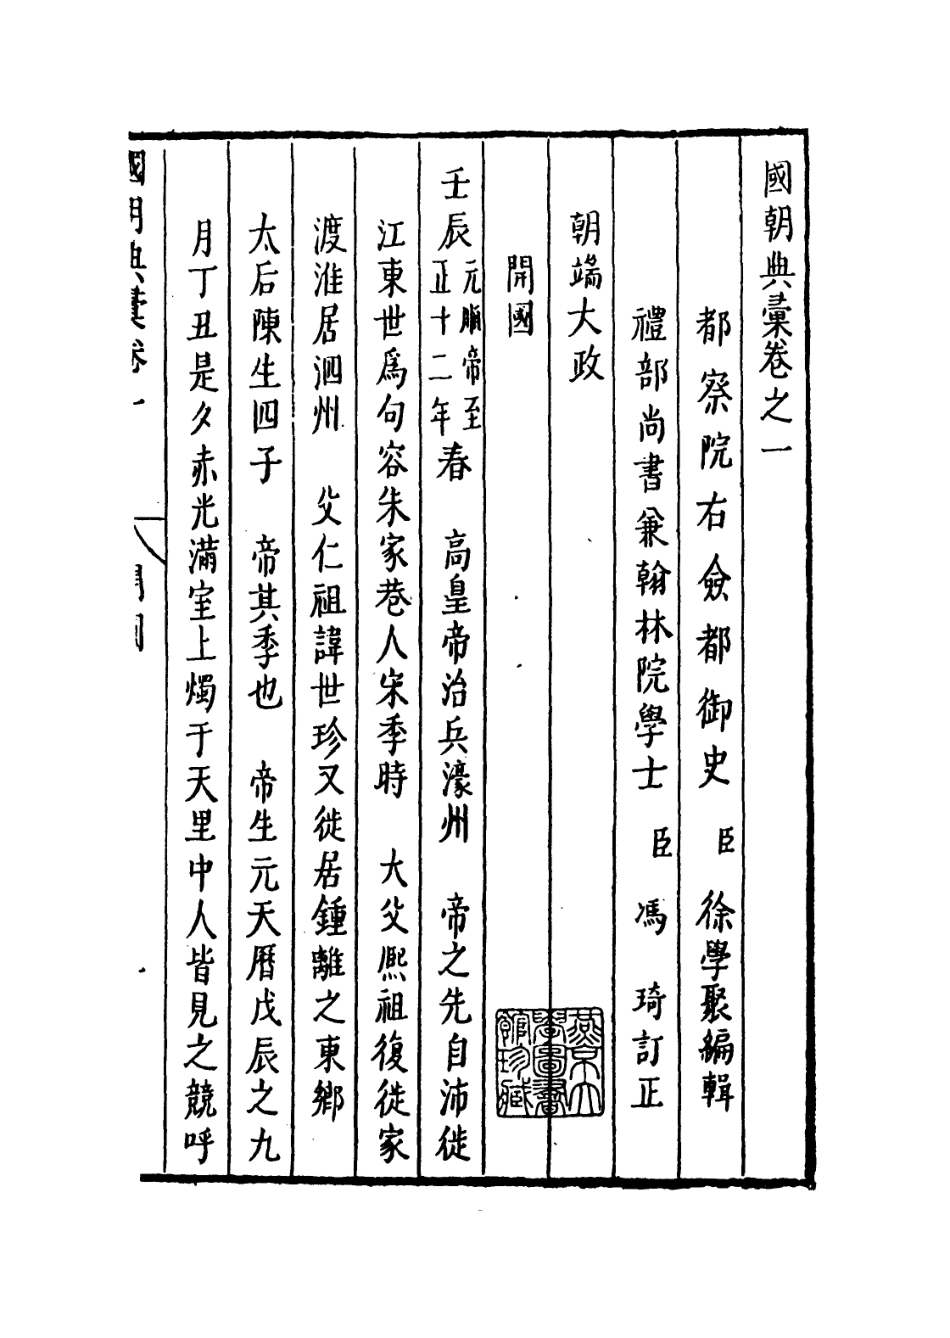 國朝典彙卷之一
都察院右僉都御史 臣 徐學聚編輯
禮部尚書兼翰林院學士 臣 馮 琦訂正
朝端大政
開國
壬辰元順帝至正十二年春 高皇帝治兵濠州 帝之先自沛徙
江東世爲句容朱家巷人宋季時 大父熈祖復徙家
渡淮居泗州 父仁祖諱世珍又徙居鍾離之東鄉
太后陳生四子 帝其季也 帝生元天曆戊辰之九
月丁丑是夕赤光滿室上燭于天里中人皆見之競呼
國朝典彙卷一 開國
燕京大學圖書館珍藏